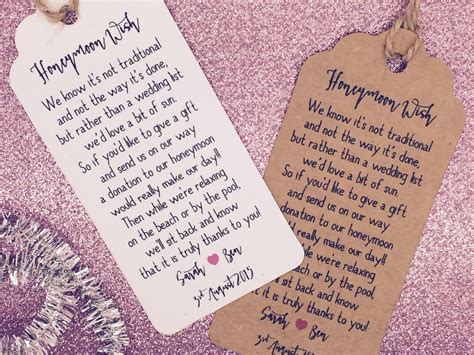 Honeymoon Wish
We know it's not traditional
and not the way it's done,
but rather than a wedding list
we'd love a bit of sun.
So if you'd like to give a gift
and send us on our way
a donation to our honeymoon
would really make our day!!
Then while we're relaxing
on the beach or by the pool,
we'll sit back and know
that it is truly thanks to you!
Sarah Ben
3rd August 2015
Honeymoon Wish
We know it's not traditional
and not the way it's done,
but rather than a wedding list
we'd love a bit of sun.
So if you'd like to give a gift
and send us on our way
a donation to our honeymoon
would really make our day!!
Then while we're relaxing
on the beach or by the pool,
we'll sit back and know
that it is truly thanks to you!
Sarah Ben
3rd August 2015